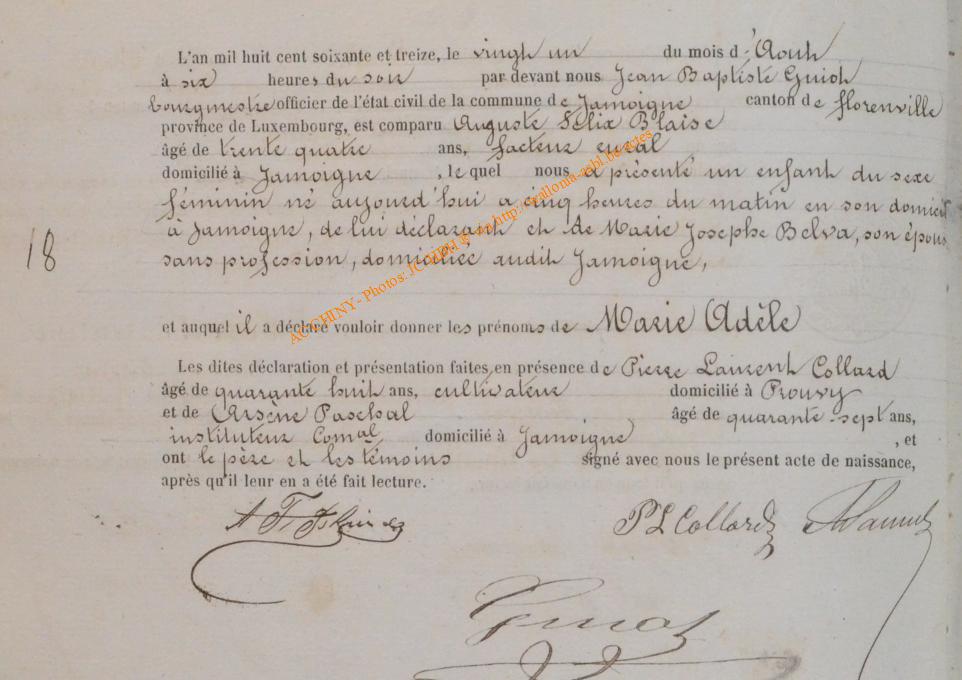 L'an mil huit cent soixante et treize, le vingt un du mois d'Août
à six heures du soir par devant nous Jean Baptiste Guiot
bourgmestre officier de l'état civil de la commune de Jamoigne canton de florenville
province de Luxembourg, est comparu Auguste Félix Blaise
âgé de trente quatre ans, facteur rural
domicilié à Jamoigne , le quel nous a présenté un enfant du sexe
féminin né aujourd'hui a cinq heures du matin en son domicil
à Jamoigne, de lui déclarant et de Marie Josephe Belva, son épous
18
sans profession, domiciliée audit Jamoigne,
et auquel il a déclaré vouloir donner les prénoms de Marie Adèle
Les dites déclaration et présentation faites en présence de Pierre Laurent Collard
âgé de quarante huit ans, cultivateur domicilié à Prouvy
et de Arsène Paschal âgé de quarante sept ans,
instituteur Comal domicilié à Jamoigne , et
ont le père et les témoins signé avec nous le présent acte de naissance,
après qu'il leur en a été fait lecture.
P L Collard
Guiot
ACCHINY - Photos: JCMPH